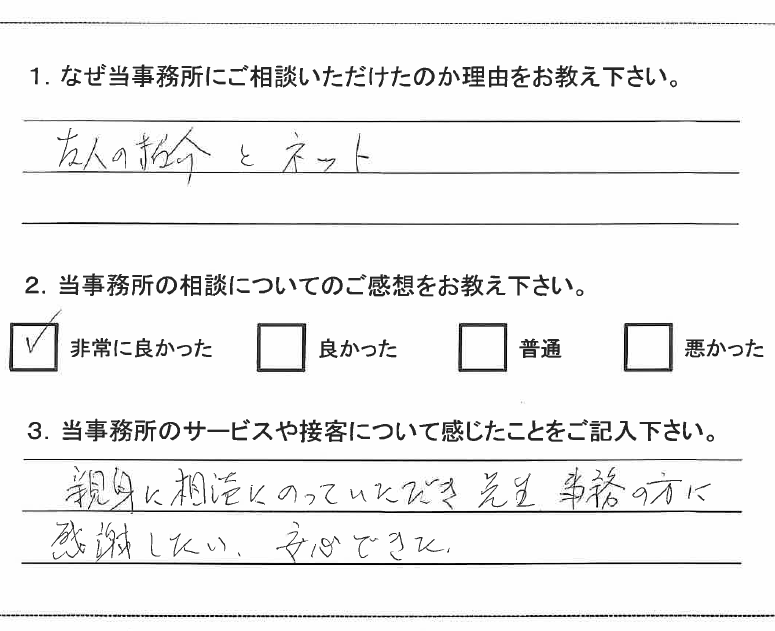 1. なぜ当事務所にご相談いただけたのか理由をお教え下さい。
友人の紹介 と ネット
2. 当事務所の相談についてのご感想をお教え下さい。
非常に良かった 良かった 普通 悪かった
3. 当事務所のサービスや接客について感じたことをご記入下さい。
親身に相談にのっていただき 先生 事務の方に
感謝したい、安心できた、